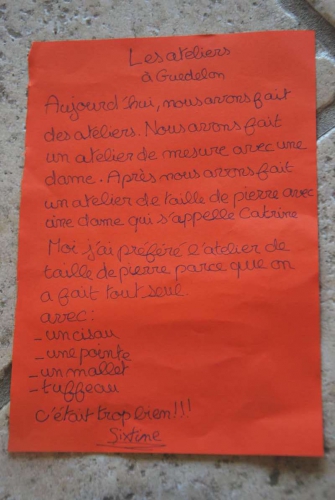 Les ateliers
à Guedelon
Aujourd'hui, nous avons fait
des atéliers. Nous avons fait
un atelier de mesure avec une
dame. Après nous avons fait
un atelier de taille de pierre avec
une dame qui s'appelle Catrine
Moi j'ai préféré l'atelier de
taille de pierre parce que on
a fait tout seul
avec :
_ un cisau
_ une pointe
_ un mallet
_ tuffeau
c'était trop bien!!!
Sixtine